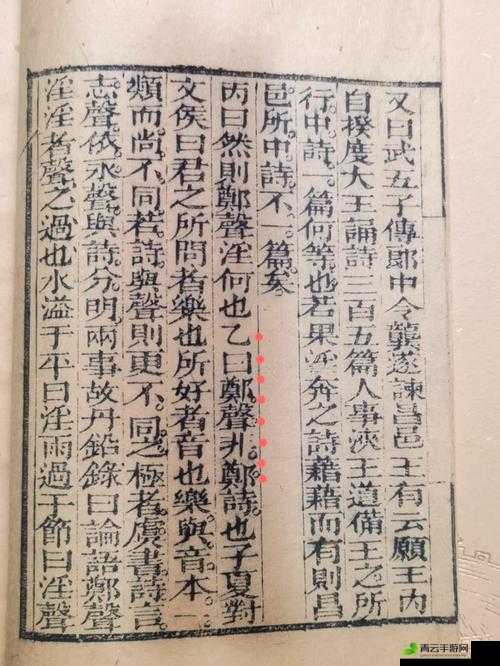 又曰武五子傳郎中令龔遂諫昌邑王有云願王内
自揆度大王誦詩三百五篇人事浹王道備王之所
行中詩一篇何等也若果淫奔之詩藉藉而有則昌
邑所中詩不一篇矣
丙曰然則鄭聲淫何也乙曰鄭聲非鄭詩也子夏對
文侯曰君之所問者樂也所好者音也樂與音本一
類而尚不同若詩與聲則更不同之極者虞書詩言
志聲依永聲與詩分明兩事故丹鉛錄曰論語鄭聲
淫淫者聲之過也水溢于平曰淫雨過于節曰淫聲
青云手游网